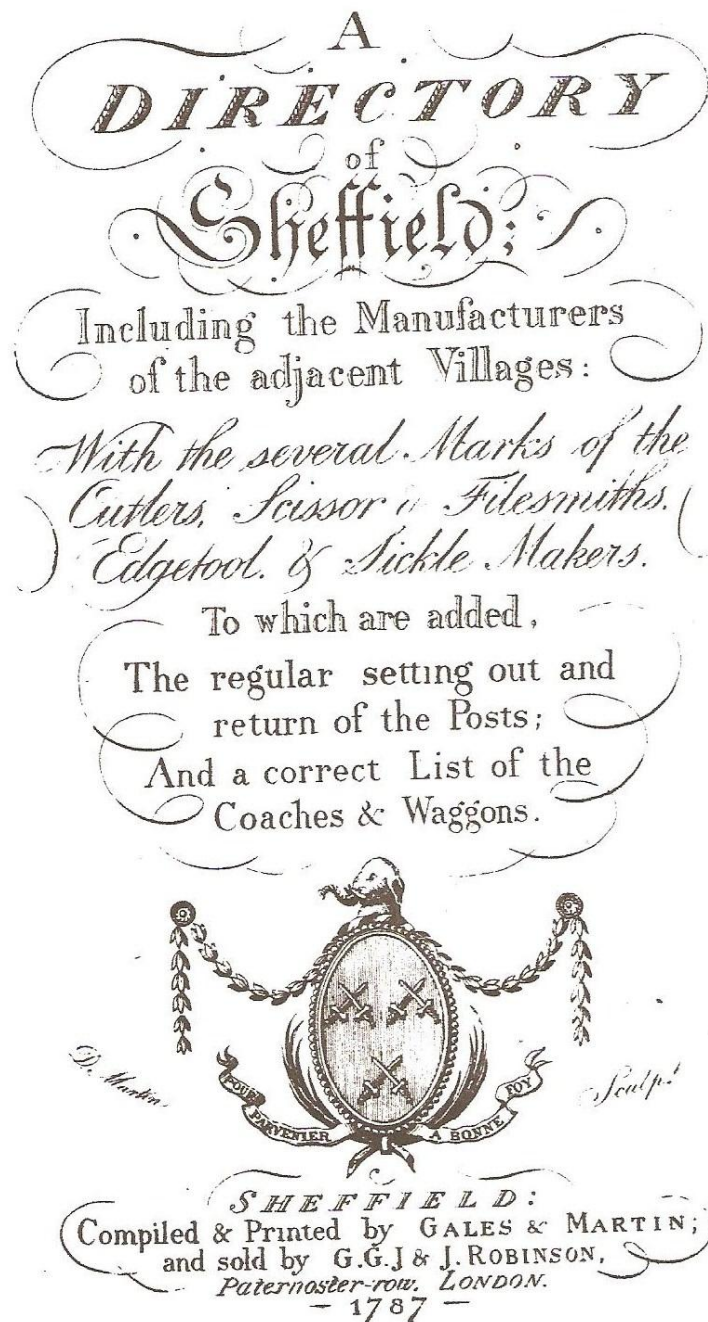 A
DIRECTORY
of
Sheffield:
Including the Manufacturers
of the adjacent Villages:
With the several Marks of the
Cutlers, Scissor & Filesmiths,
Edgetool, & Sickle Makers.
To which are added,
The regular setting out and
return of the Posts;
And a correct List of the
Coaches & Waggons.
D. Martin Sculpt.
POUR PARVENIER A BONNE FOY
SHEFFIELD:
Compiled & Printed by GALES & MARTIN;
and sold by G.G.J & J. ROBINSON,
Paternoster-row. LONDON.
– 1787 –